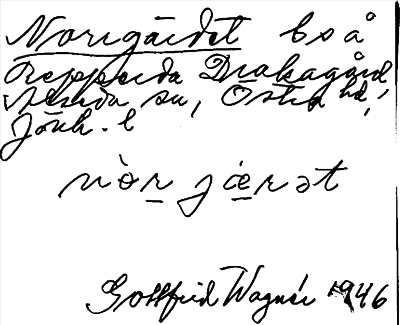 Norrgärdet bs å
Repperda Drakagård
Stenda sn, Östra hd,
Jönk. l
nòr jærət
Gottfrid Wagnér 1946